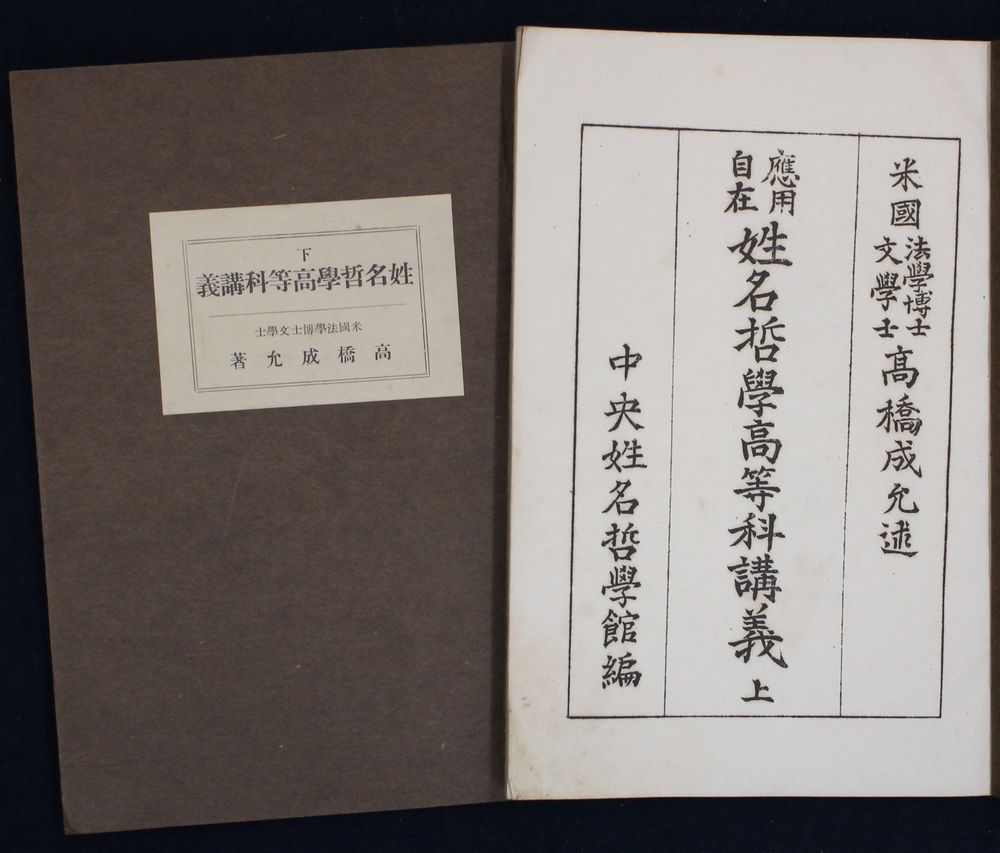 下
義講科等高學哲名姓
士學文士博學法國米
著 允 成 橋 高
米國
法學博士
文學士
高橋成允述
應用
自在
姓名哲學高等科講義 上
中央姓名哲學館編